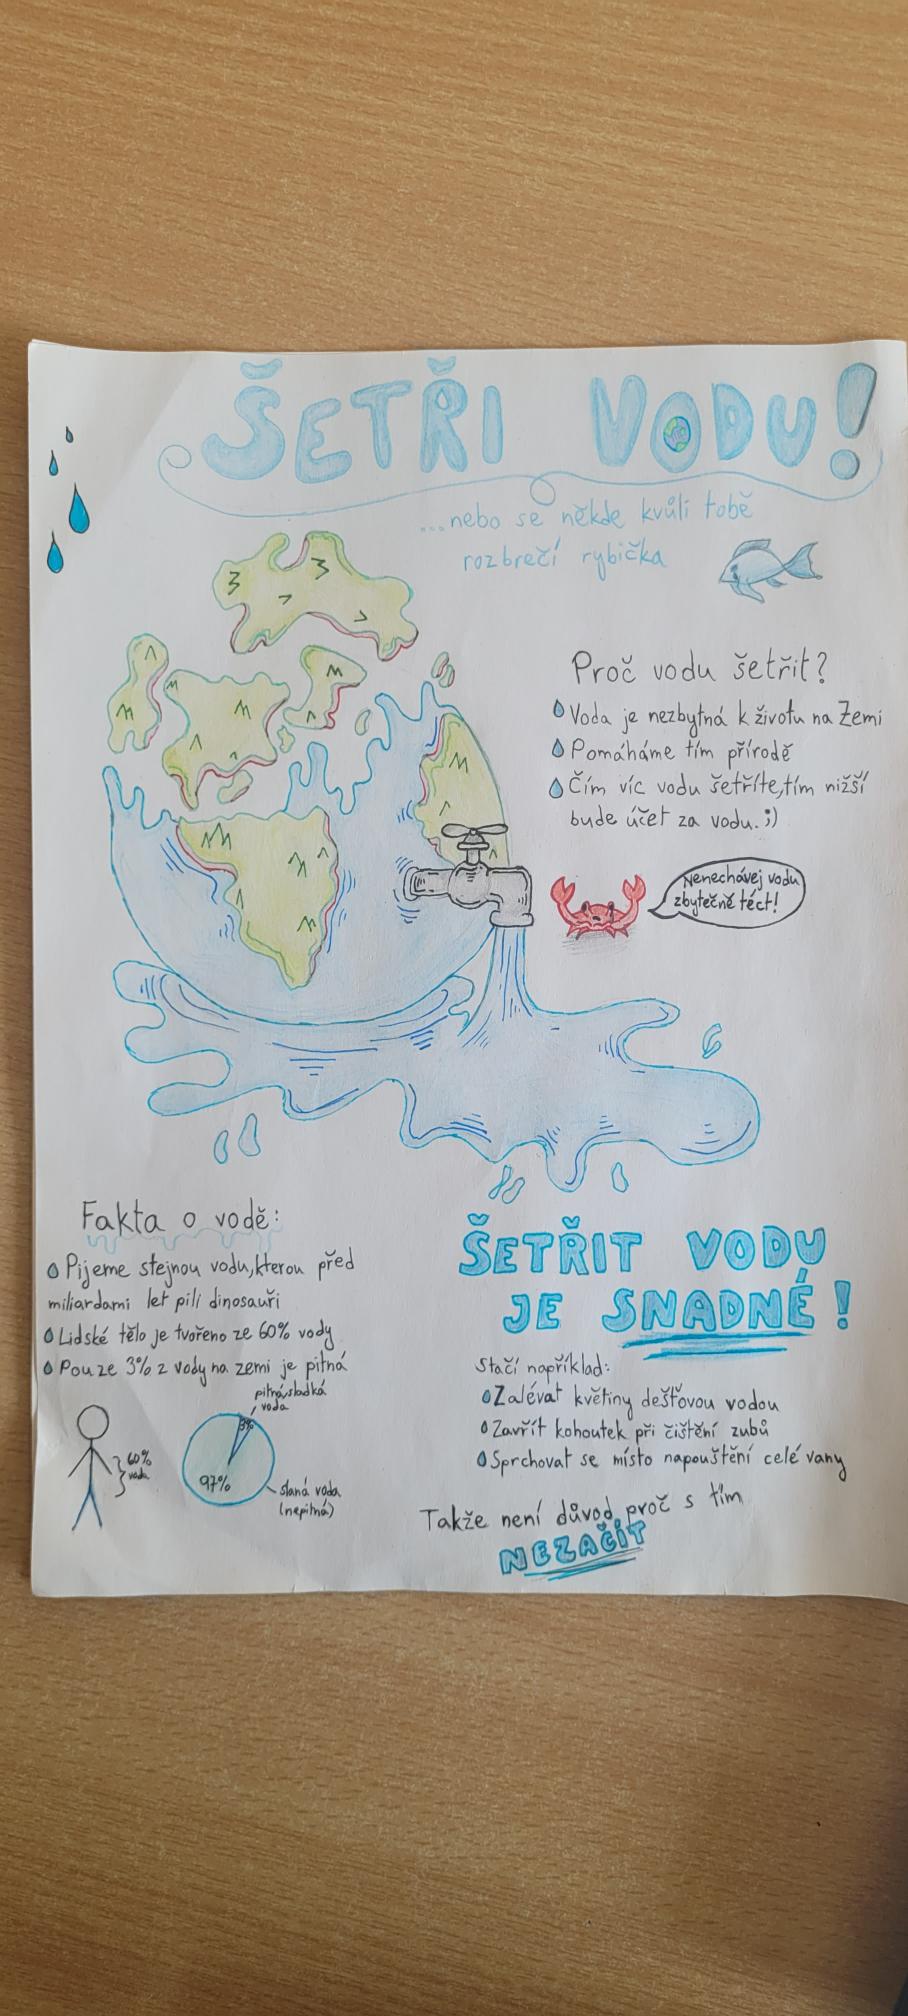 ŠETŘI VODU!
...nebo se někde kvůli tobě
rozbrečí rybička
Proč vodu šetřit?
Voda je nezbytná k životu na Zemi
Pomáháme tím přírodě
Čím víc vodu šetříte, tím nižší
bude účet za vodu. ;)
Nenechávej vodu
zbytečně téct!
Fakta o vodě:
Pijeme stejnou vodu, kterou před
miliardami let pili dinosauři
Lidské tělo je tvořeno ze 60% vody
Pouze 3% z vody na zemi je pitná
pitná, sladká
voda
3%
60%
voda
97%
slaná voda
(nepitná)
ŠETŘIT VODU
JE SNADNÉ!
Stačí například:
Zalévat květiny dešťovou vodou
Zavřít kohoutek při čištění zubů
Sprchovat se místo napouštění celé vany
Takže není důvod proč s tím
NEZAČÍT